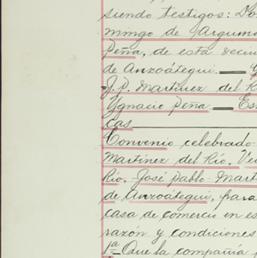 siendo testigos: Do
mingo de Argum
Peña, de esta vecin
de Anzoátegui.
J. P. Martinez del R
Ygnacio Peña — Es
cas
Convenio celebrado
Martinez del Río, Vi
Río. José Pablo Mart
de Anzoátegui, para
casa de comercio en es
razón y condiciones
1ª Que la compañía